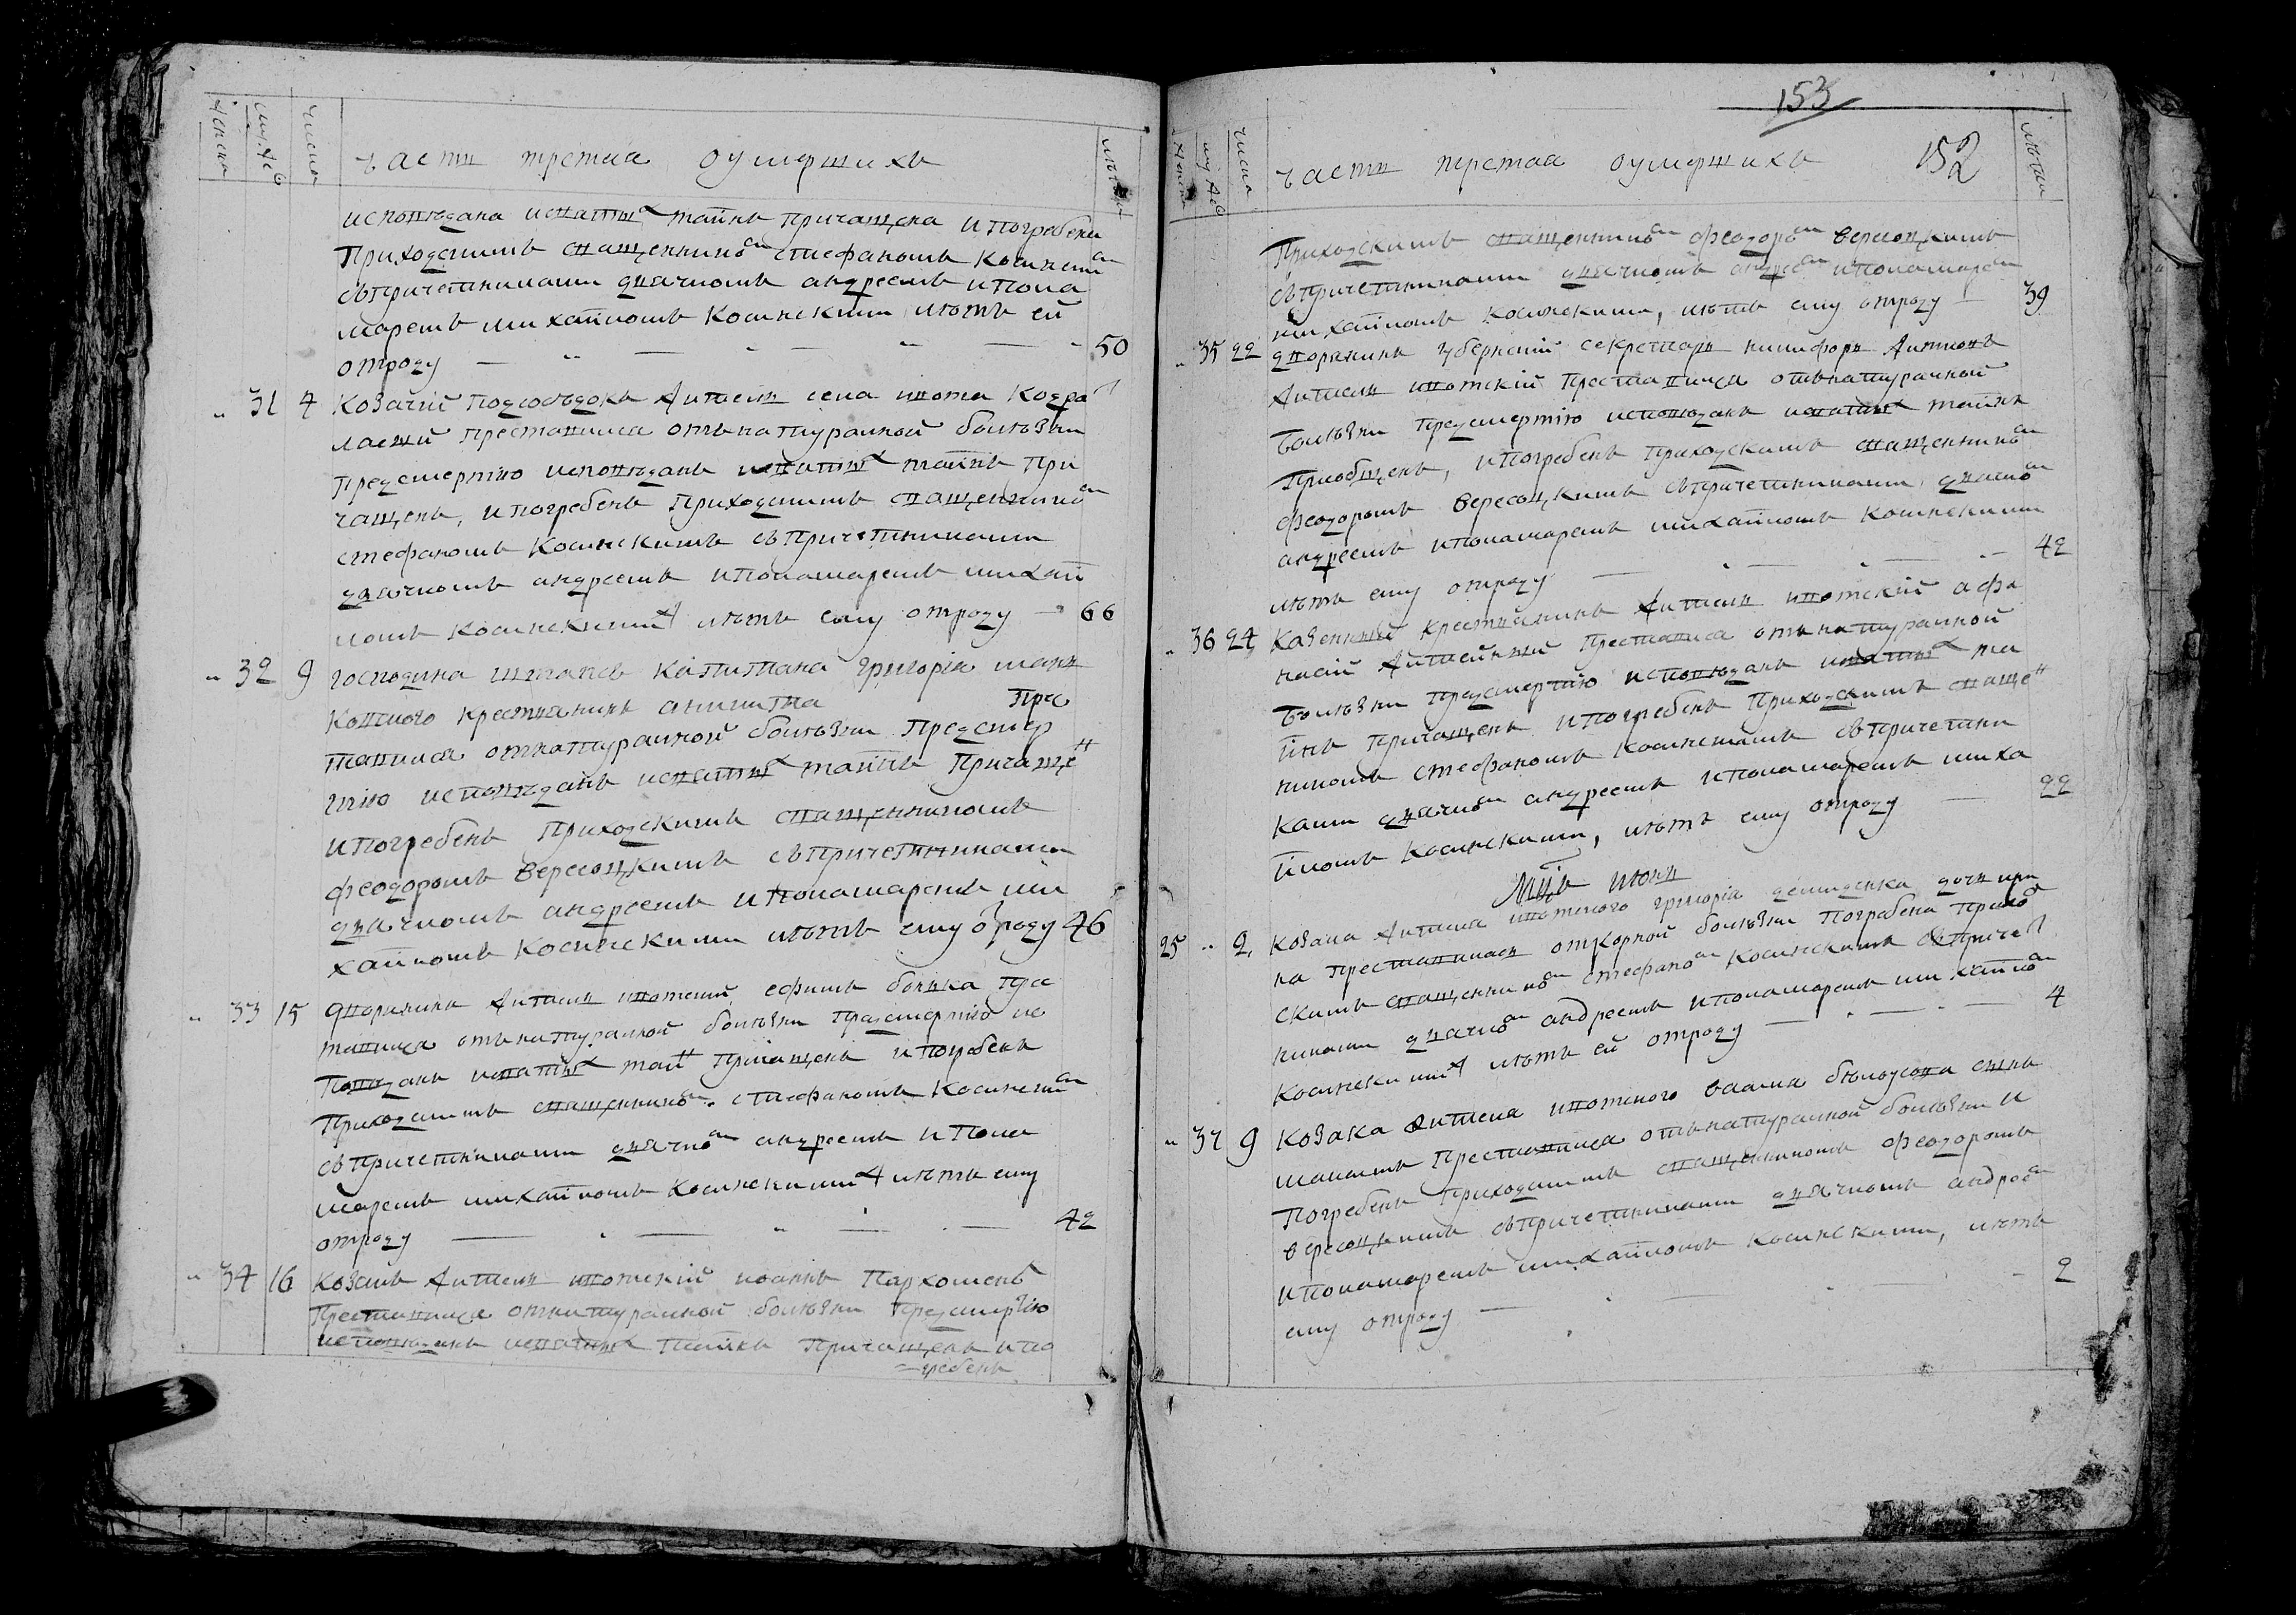 женска
мужеска
числа
часть третиа оумершихъ
лѣта
исповѣдана исвятых таинъ причащена ипогребена
Приходскимъ священником стефаномъ Косинским
съпричетниками дьячкомъ андреемъ ипона
маремъ михайломъ Косинскими лѣтъ ей
отроду 50
31 4 Козачій подсосѣдокъ житель села
преставился отънатуралной болѣзни
предсмертію исповѣданъ исвятых таинъ при
чащенъ, ипогребенъ Приходскимъ священником
стефаномъ Косинскимъ съпричетниками
дьячкомъ андреемъ ипонамаремъ михай
ломъ Косинскими лѣтъ ему отроду 66
32 9 господина штапсъ капитана григоріа
крестьянинъ Прес
тавился отнатуралной болѣзни Предсмер
тію исповѣданъ исвятых таинъ Причаще н
ипогребенъ Приходскимъ священникомъ
феодоромъ Вересоцкимъ съпричетниками
дьячкомъ андреемъ ипонамаремъ ми
хайломъ Косинскими лѣтъ ему отроду 46
33 15 дворянинъ житель ефимъ Прес
тавился отънатуралной болѣзни предсмертію ис
повѣданъ исвятых таин Причащенъ ипогребенъ
Приходскимъ священником стефаномъ Косинским
съпричетниками дьячком андреемъ ипона
маремъ михайломъ Косинскими лѣтъ ему
отроду 42
34 16 Козакъ житель иоаннъ Пархоменко
Преставился отнатуралной болѣзни Предсмертію
исповѣданъ исвятых таинъ Причащенъ ипо
гребенъ
153
женска
муже
числа
часть третаа оумершихъ 152
лѣта
Приходскимъ священником феодором Вересоцкимъ
съпричетниками дьячкомъ андреем ипонамарем
михайломъ Косинскими, лѣтъ ему отроду 39
35 22 дворянинъ губернскій секретарь никифоръ
житель преставился отънатуралной
болѣзни предсмертію исповѣданъ исвятых таинъ
Приобщенъ, ипогребенъ Приходскимъ священником
феодоромъ Вересоцкимъ съпричетниками дьячком
андреемъ ипонамаремъ михайломъ Косинскими
лѣтъ ему отроду 42
36 24 Казенный крестьянинъ житель афа
насій преставился отънатуралной
болѣзни предсмертію исповѣданъ исвятых та
инъ Причащенъ ипогребенъ Приходскимъ священ
никомъ стефаномъ Косинскимъ съпричетни
ками дьячком андреемъ ипонамаремъ миха
йломъ Косинскими, лѣтъ ему отроду 22
Мцъ июнь
25 2 Козака жителя григоріа дочь ири
на преставилась откорной болѣзни погребена прихо
скимъ священником стефаном Косинскимъ съпричет
никами дьячком андреемъ ипонамаремъ михайлом
Косинскими лѣтъ ей отроду 4
37 9 Козака жителя сынъ
Преставился отънатуралной болѣзни и
Погребенъ Приходскимъ священникомъ феодоромъ
Вересоцкимъ съпричетниками дьячкомъ андреем
ипонамаремъ михайломъ Косинскими, лѣтъ
ему отроду 2